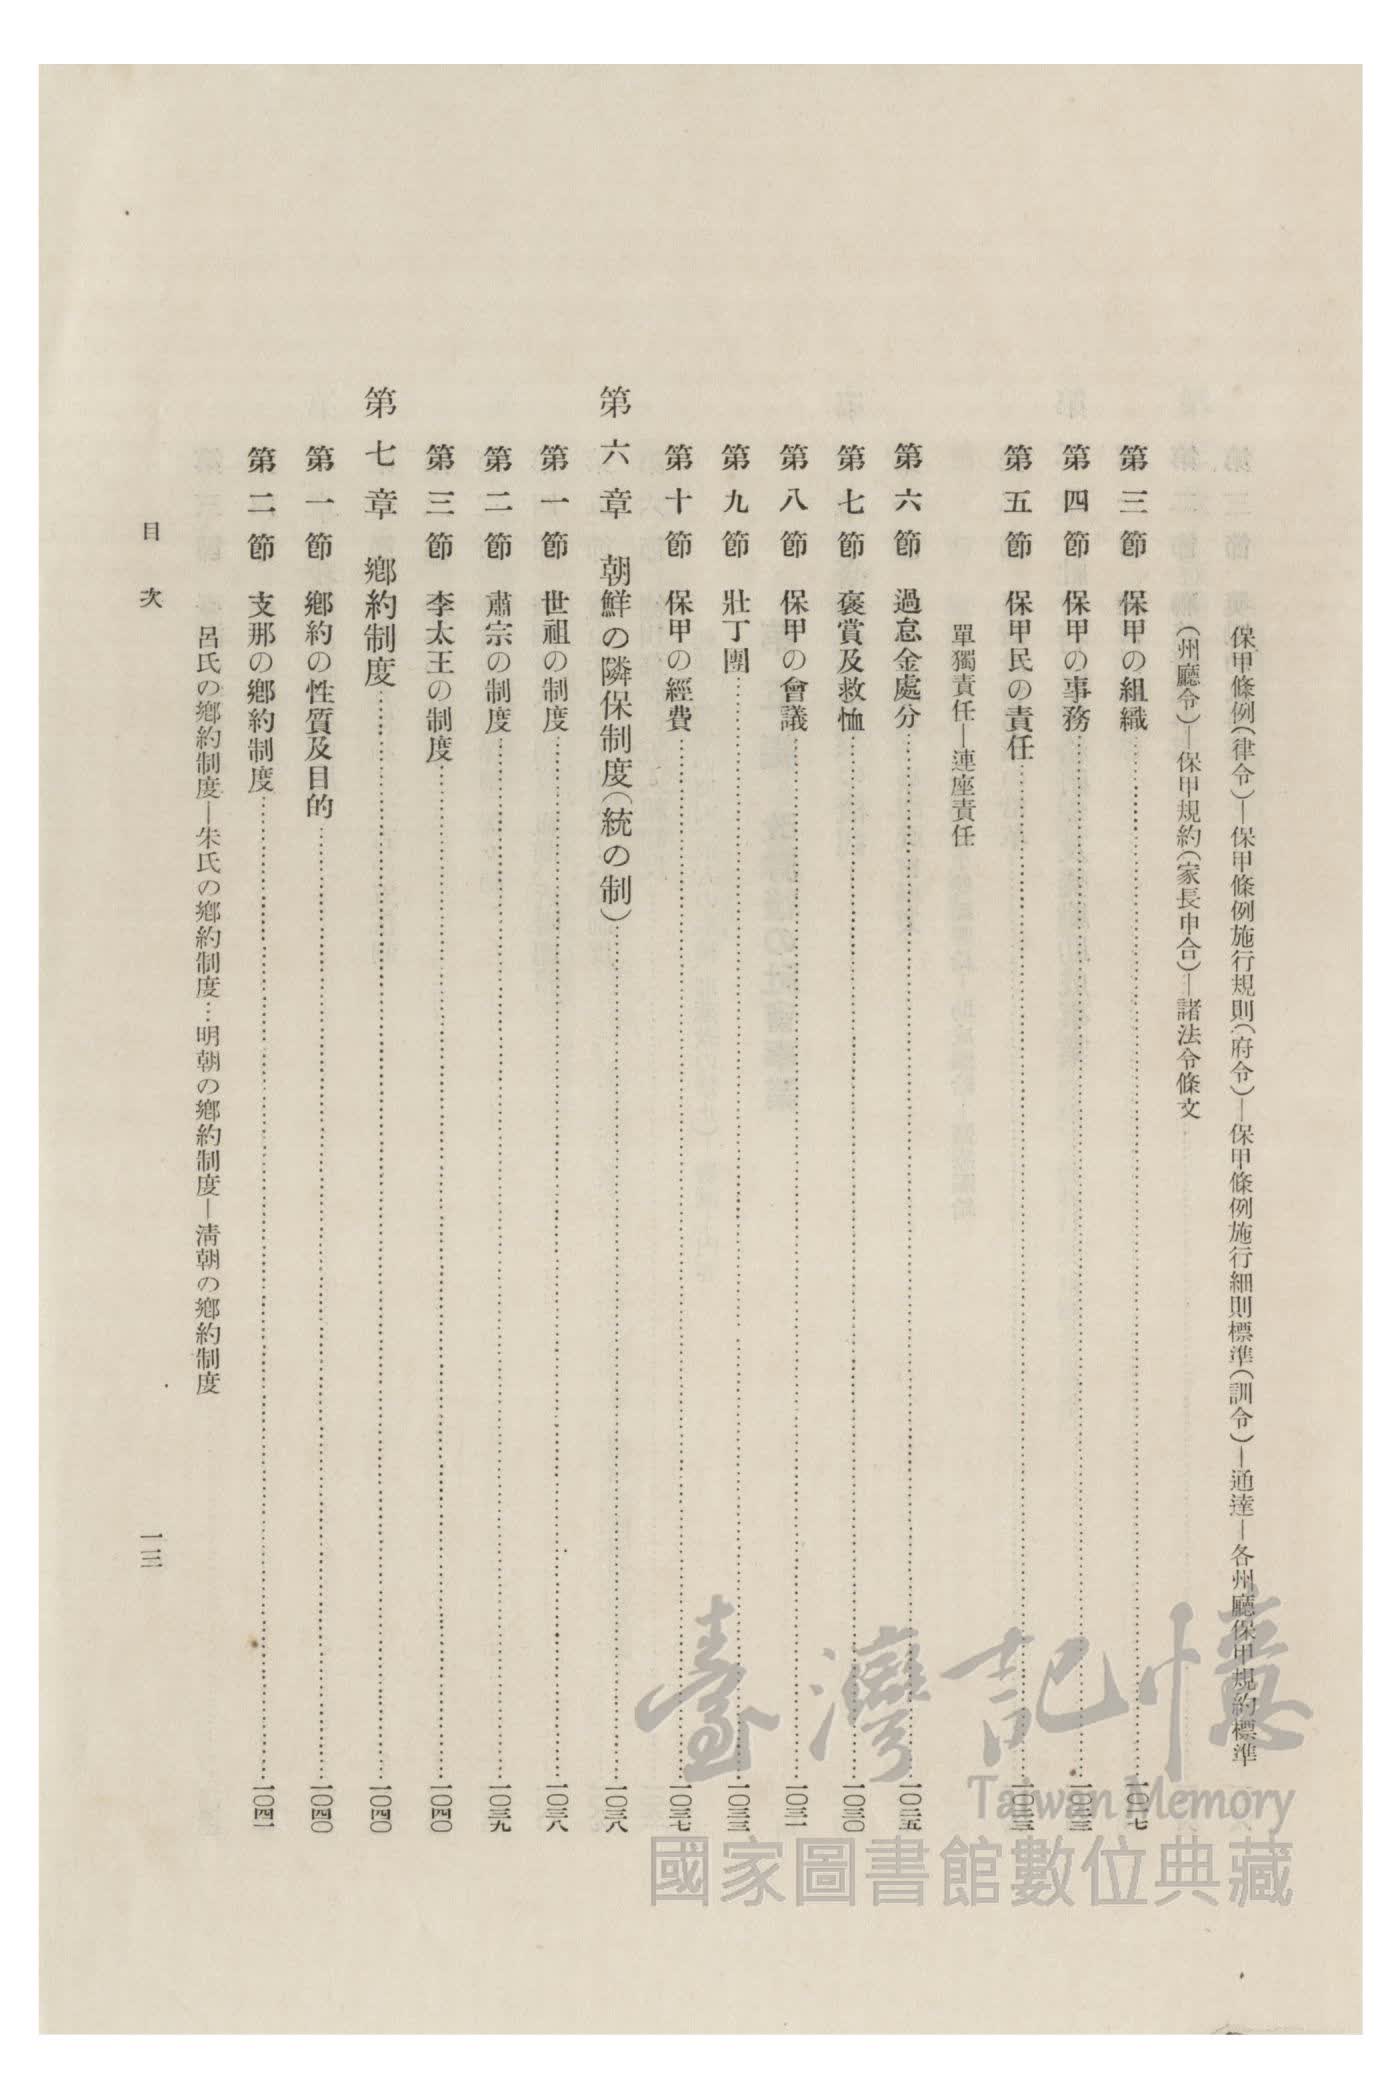 保甲條例(律令)—保甲條例施行規則(府令)—保甲條例施行細則標準(訓令)—通達—各州廳保甲規約標準
(州廳令)—保甲規約(家長申合)—諸法令條文
第三節 保甲の組織……一〇一七
第四節 保甲の事務……一〇二三
第五節 保甲民の責任……一〇二三
單獨責任—連座責任
第六節 過怠金處分……一〇二五
第七節 褒賞及救恤……一〇三〇
第八節 保甲の會議……一〇三一
第九節 壯丁團……一〇三三
第十節 保甲の經費……一〇三七
第六章 朝鮮の隣保制度(統の制)……一〇三八
第一節 世祖の制度……一〇三八
第二節 肅宗の制度……一〇三九
第三節 李太王の制度……一〇四〇
第七章 鄕約制度……一〇四〇
第一節 鄕約の性質及目的……一〇四〇
第二節 支那の鄕約制度……一〇四一
呂氏の鄕約制度—朱氏の鄕約制度…明朝の鄕約制度—淸朝の鄕約制度
目次
一三
臺灣記憶
Taiwan Memory
國家圖書館數位典藏